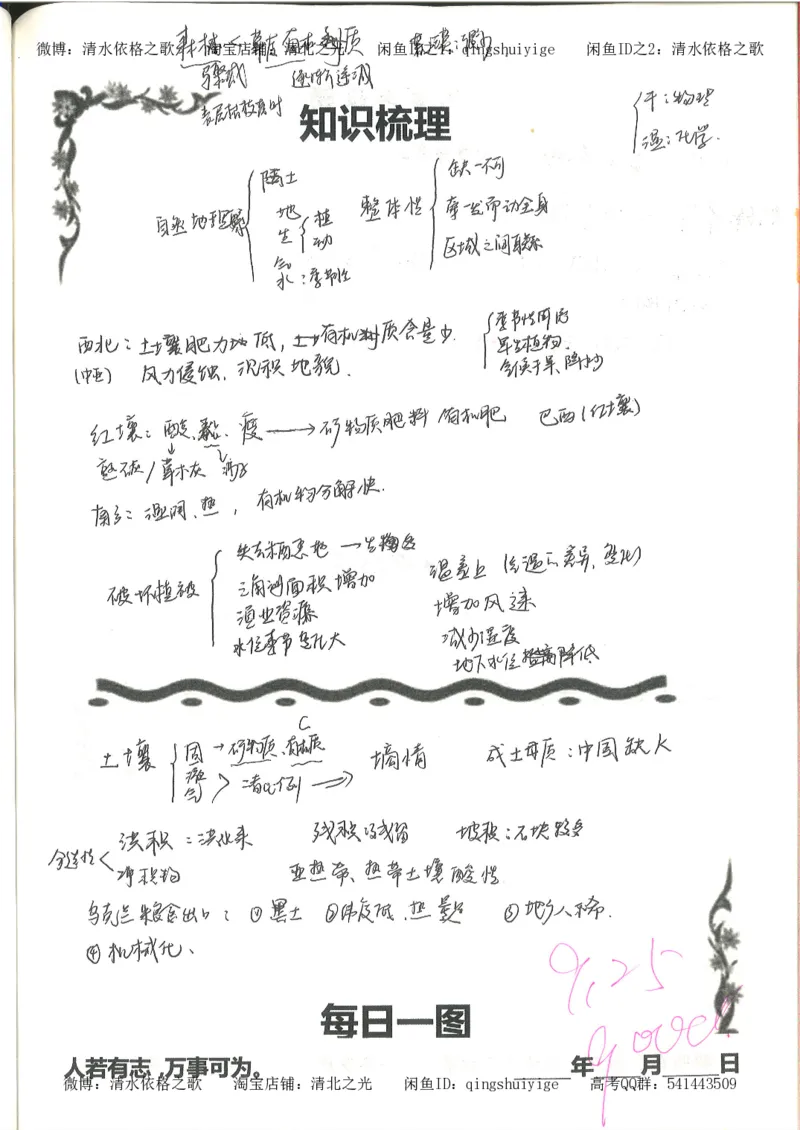 微博：清水依格之歌 淘宝店铺：清北之光 闲鱼ID之1：qingshuiyige 闲鱼ID之2：清水依格之歌
森林< 草原 有机质
逐渐递减
知识梳理
干：物理
湿：化学.
自然地理环境
陶土
地
生 植 动
气
水：季节性
整体性
缺一不可
牵一发而动全身
区域之间联系
西北：土壤肥力地低，土壤有机物质含量少
(中亚) 风力侵蚀，沉积地貌.
草生植物.
气候干旱，降水少
红壤：酸、黏、瘦 → 矿物质肥料 有机肥 巴西(红壤)
熟石灰/草木灰 沙子
南方：湿润、热，有机物分解快.
破坏植被
失去栖息地 → 生物多
三角洲面积增加
渔业资源
水位季节变化大
温差上 (气温的差异，变化)
增加风速
减少湿度
地下水位降低
土壤
固 → 矿物质、有机质
液
气
墒情
成土母质：中国缺火
洪积：洪水来 残积：残留 坡积：石块较多
冲积物
亚热带、热带土壤酸性
乌克兰粮食出口：①黑土 ②纬度低、热量 ③地广人稀.
④机械化、
9.25
每日一图
人若有志，万事可为。
年 月 日
微博：清水依格之歌 淘宝店铺：清北之光 闲鱼ID：qingshuiyige 高考QQ群：541443509